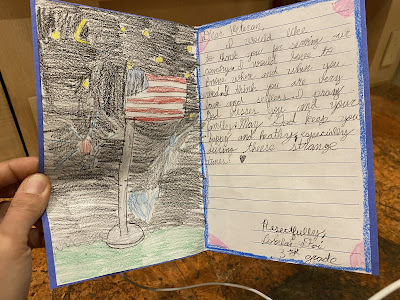 Dear Veteran,
I would like
to thank you for serving our
country. I would love to
know where and when you
I think you are very
brave and selfless. I pray
God blesses you and your
family. May God keep you
happy and healthy, especially
during these strange
times! ♥
Respectfully,
3rd grade